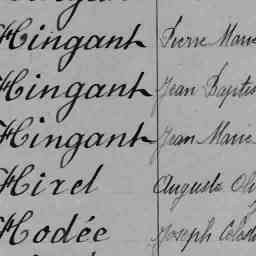 Hingant Pierre Marie
Hingant Jean Baptis
Hingant Jean Marie
Hirel Auguste Oli
Hodée Joseph Celest